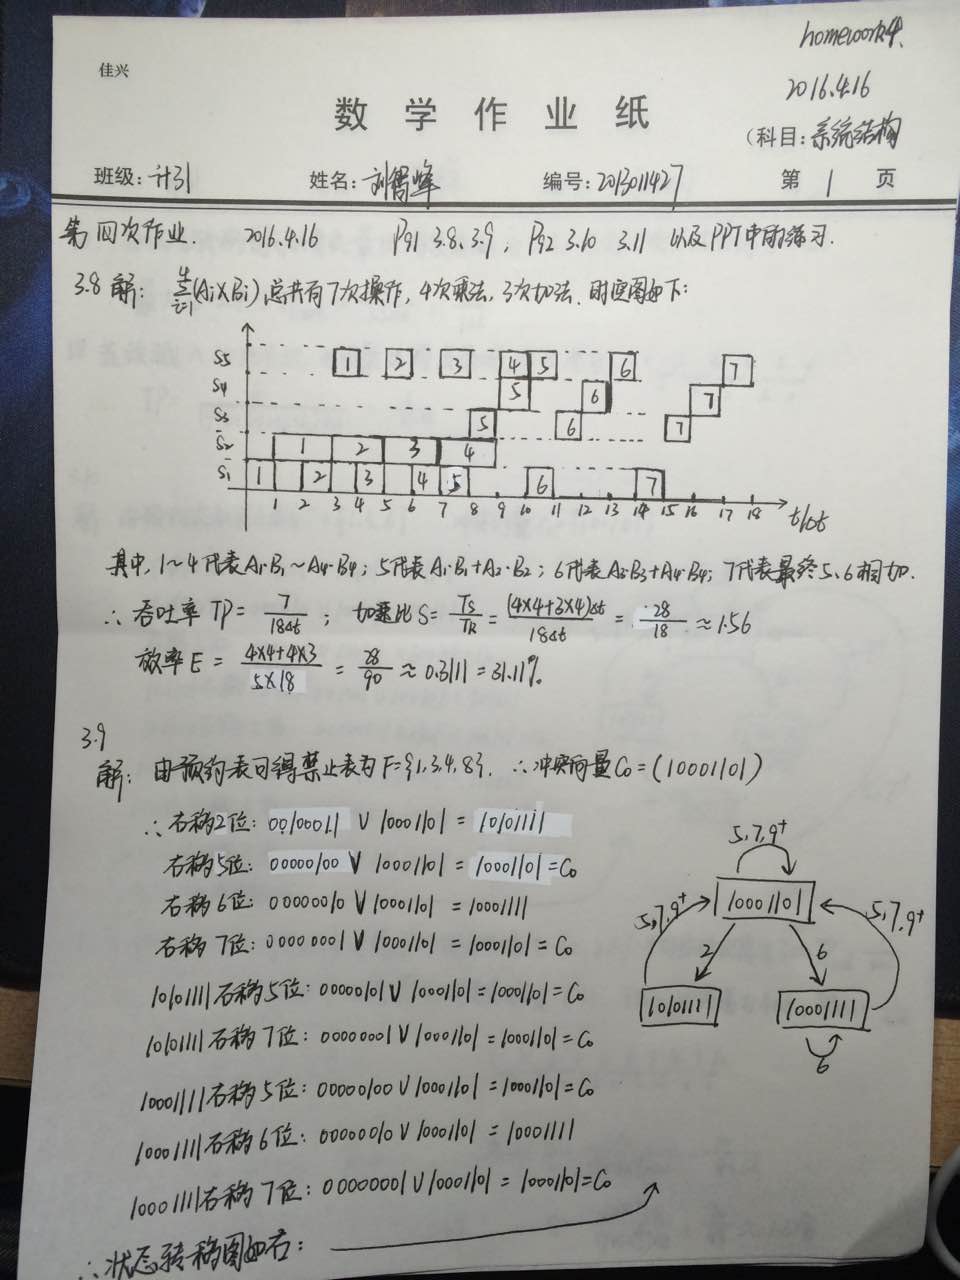 homework4.
佳兴
2016.4.16
数学作业纸
(科目:系统结构
班级:计31 姓名: 编号:2013011427 第 1 页
第四次作业. 2016.4.16 P91 3.8、3.9, P92 3.10 3.11 以及PPT中的练习.
3.8 解: 4∑i=1(Ai×Bi)总共有7次操作, 4次乘法, 3次加法. 时空图如下:
S5 1 2 3 4 5 6 7
S4 5 6 7
S3 5 6 7
S2 1 2 3 4
S1 1 2 3 4 5 6 7
1 2 3 4 5 6 7 8 9 10 11 12 13 14 15 16 17 18 t/Δt
其中, 1~4代表A1·B1~A4·B4; 5代表A1·B1+A2·B2; 6代表A3·B3+A4·B4; 7代表最终5、6相加.
∴ 吞吐率 TP = 7/18Δt ; 加速比 S = Ts/Tk = (4×4+3×4)Δt/18Δt = 28/18 ≈ 1.56
效率 E = 4×4+4×3/5×18 = 28/90 ≈ 0.3111 = 31.11%
3.9
解: 由预约表可得禁止表为 F={1,3,4,8}. ∴冲突向量C0=(10001101)
∴右移2位: 00100011 ∨ 10001101 = 10101111
右移5位: 00000100 ∨ 10001101 = 10001101 = C0
右移6位: 00000010 ∨ 10001101 = 10001111
右移7位: 00000001 ∨ 10001101 = 10001101 = C0
10101111右移5位: 00000101 ∨ 10001101 = 10001101 = C0
10101111右移7位: 00000001 ∨ 10001101 = 10001101 = C0
10001111右移5位: 00000100 ∨ 10001101 = 10001101 = C0
10001111右移6位: 00000010 ∨ 10001101 = 10001111
10001111右移7位: 00000001 ∨ 10001101 = 10001101 = C0
∴状态转移图如右:
5,7,9+
10001101
5,7,9+ 2 6 5,7,9+
10101111 10001111
6